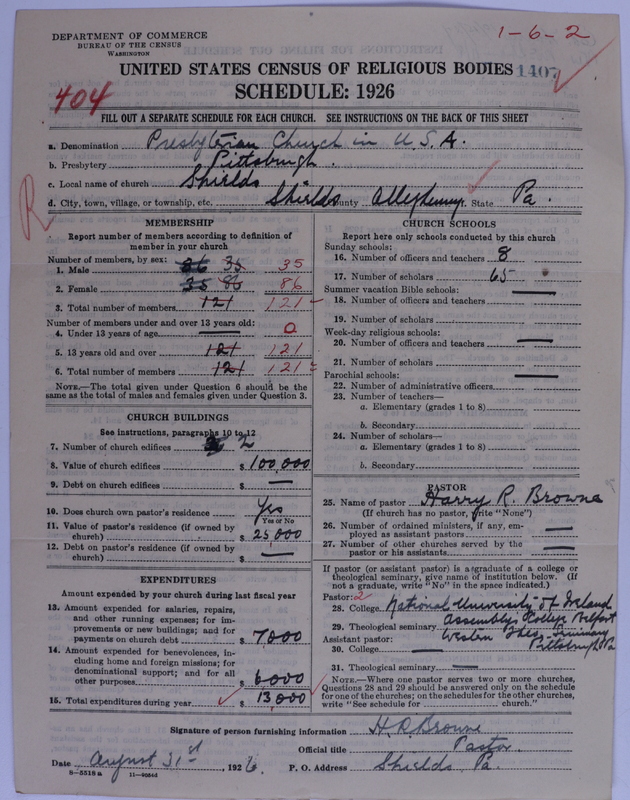 1-6-2
DEPARTMENT OF COMMERCE
BUREAU OF THE CENSUS
WASHINGTON
UNITED STATES CENSUS OF RELIGIOUS BODIES 1407
404
SCHEDULE: 1926
FILL OUT A SEPARATE SCHEDULE FOR EACH CHURCH. SEE INSTRUCTIONS ON THE BACK OF THIS SHEET
a. Denomination Presbyterian Church in U.S.A.
b. Presbytery Pittsburgh.
c. Local name of church Shields
d. City, town, village, or township, etc. Shields County Allegheny State Pa.
R
MEMBERSHIP
Report number of members according to definition of
member in your church
Number of members, by sex:
1. Male 86 35 35
2. Female 35 86 86
3. Total number of members 121 121
Number of members under and over 13 years old:
4. Under 13 years of age 0
5. 13 years old and over 121 121
6. Total number of members 121 121
NOTE.—The total given under Question 6 should be the
same as the total of males and females given under Question 3.
CHURCH BUILDINGS
See instructions, paragraphs 10 to 12
7. Number of church edifices 2
8. Value of church edifices $ 100,000
9. Debt on church edifices $ —
10. Does church own pastor's residence? Yes
Yes or No
11. Value of pastor's residence (if owned by
church) $ 25,000
12. Debt on pastor's residence (if owned by
church) $ —
EXPENDITURES
Amount expended by your church during last fiscal year
13. Amount expended for salaries, repairs,
and other running expenses; for im-
provements or new buildings; and for
payments on church debt $ 7,000
14. Amount expended for benevolences, in-
cluding home and foreign missions; for
denominational support; and for all
other purposes $ 6,000
15. Total expenditures during year $ 13,000
CHURCH SCHOOLS
Report here only schools conducted by this church
Sunday schools:
16. Number of officers and teachers 8
17. Number of scholars 65
Summer vacation Bible schools: —
18. Number of officers and teachers
19. Number of scholars
Week-day religious schools:
20. Number of officers and teachers —
21. Number of scholars
Parochial schools: —
22. Number of administrative officers
23. Number of teachers—
a. Elementary (grades 1 to 8)
b. Secondary
24. Number of scholars—
a. Elementary (grades 1 to 8)
b. Secondary
PASTOR
25. Name of pastor Harry R. Browne
(If church has no pastor, write "None")
26. Number of ordained ministers, if any, em-
ployed as assistant pastors —
27. Number of other churches served by the
pastor or his assistants —
If pastor (or assistant pastor) is a graduate of a college or
theological seminary, give name of institution below. (If
not a graduate, write "No" in the space indicated.)
Pastor: 2
28. College National University of Ireland
29. Theological seminary Assembly's College Belfast
Assistant pastor: Western Theo. Seminary
30. College — Pittsburgh Pa
31. Theological seminary —
NOTE.—Where one pastor serves two or more churches,
Questions 28 and 29 should be answered only on the schedule
for one of the churches; on the schedules for the other churches,
write "See schedule for church."
Signature of person furnishing information H.R. Browne
Official title Pastor.
Date August 31st, 1926. P. O. Address Shields, Pa.
8-5518a 11-9054d